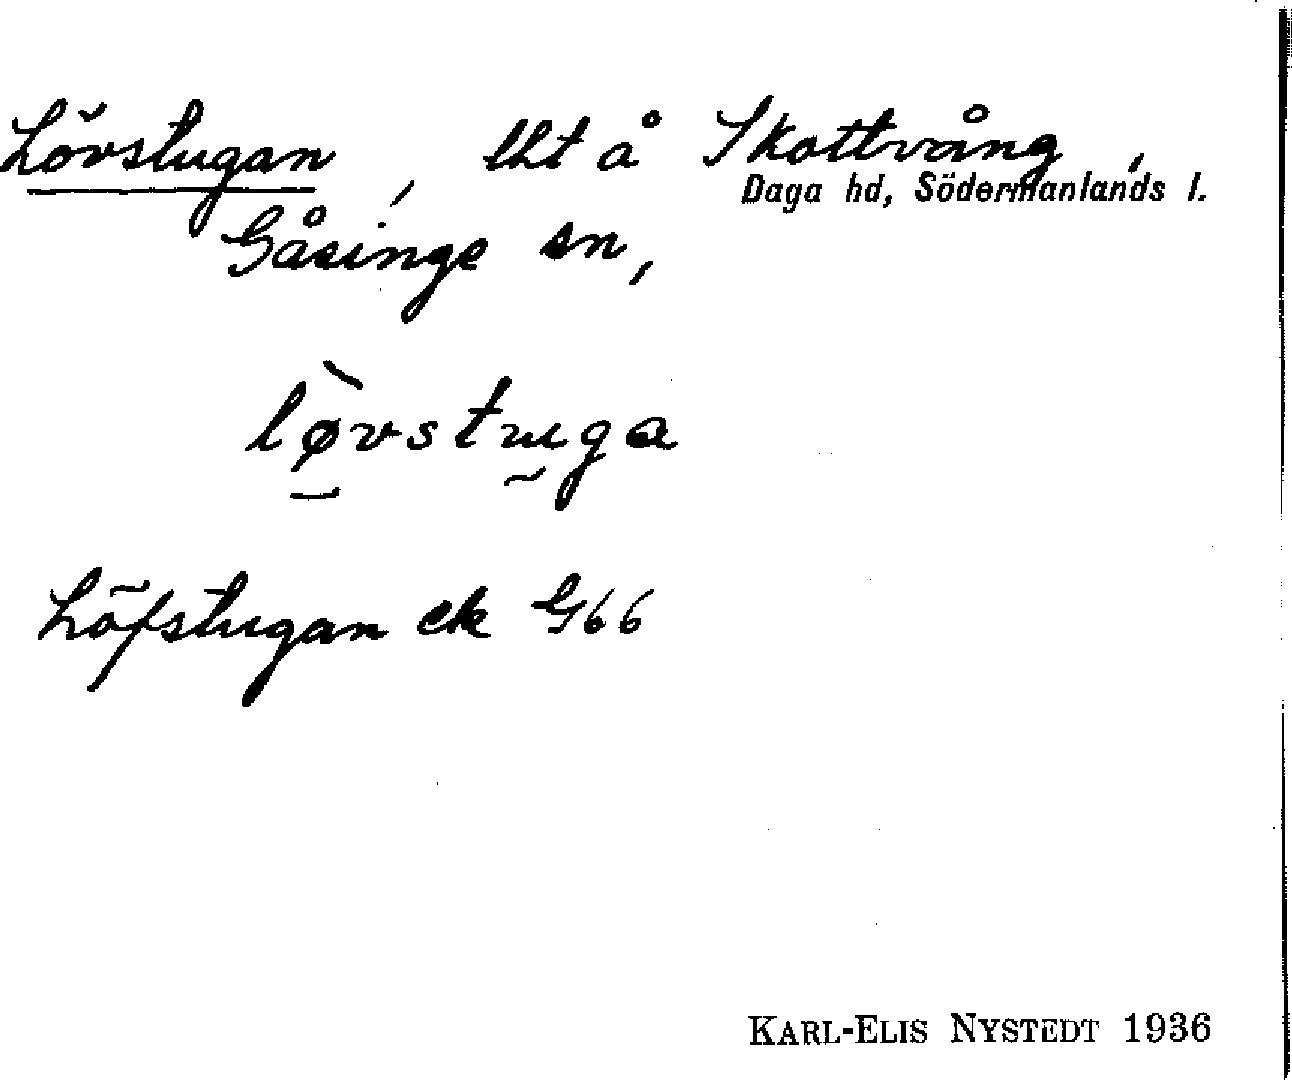 Lövstugan, lht å Skottvång,
Daga hd, Södermanlands l.
Gåsinge sn,
lø̀vstuga
Löfstugan ek G66
KARL-ELIS NYSTEDT 1936